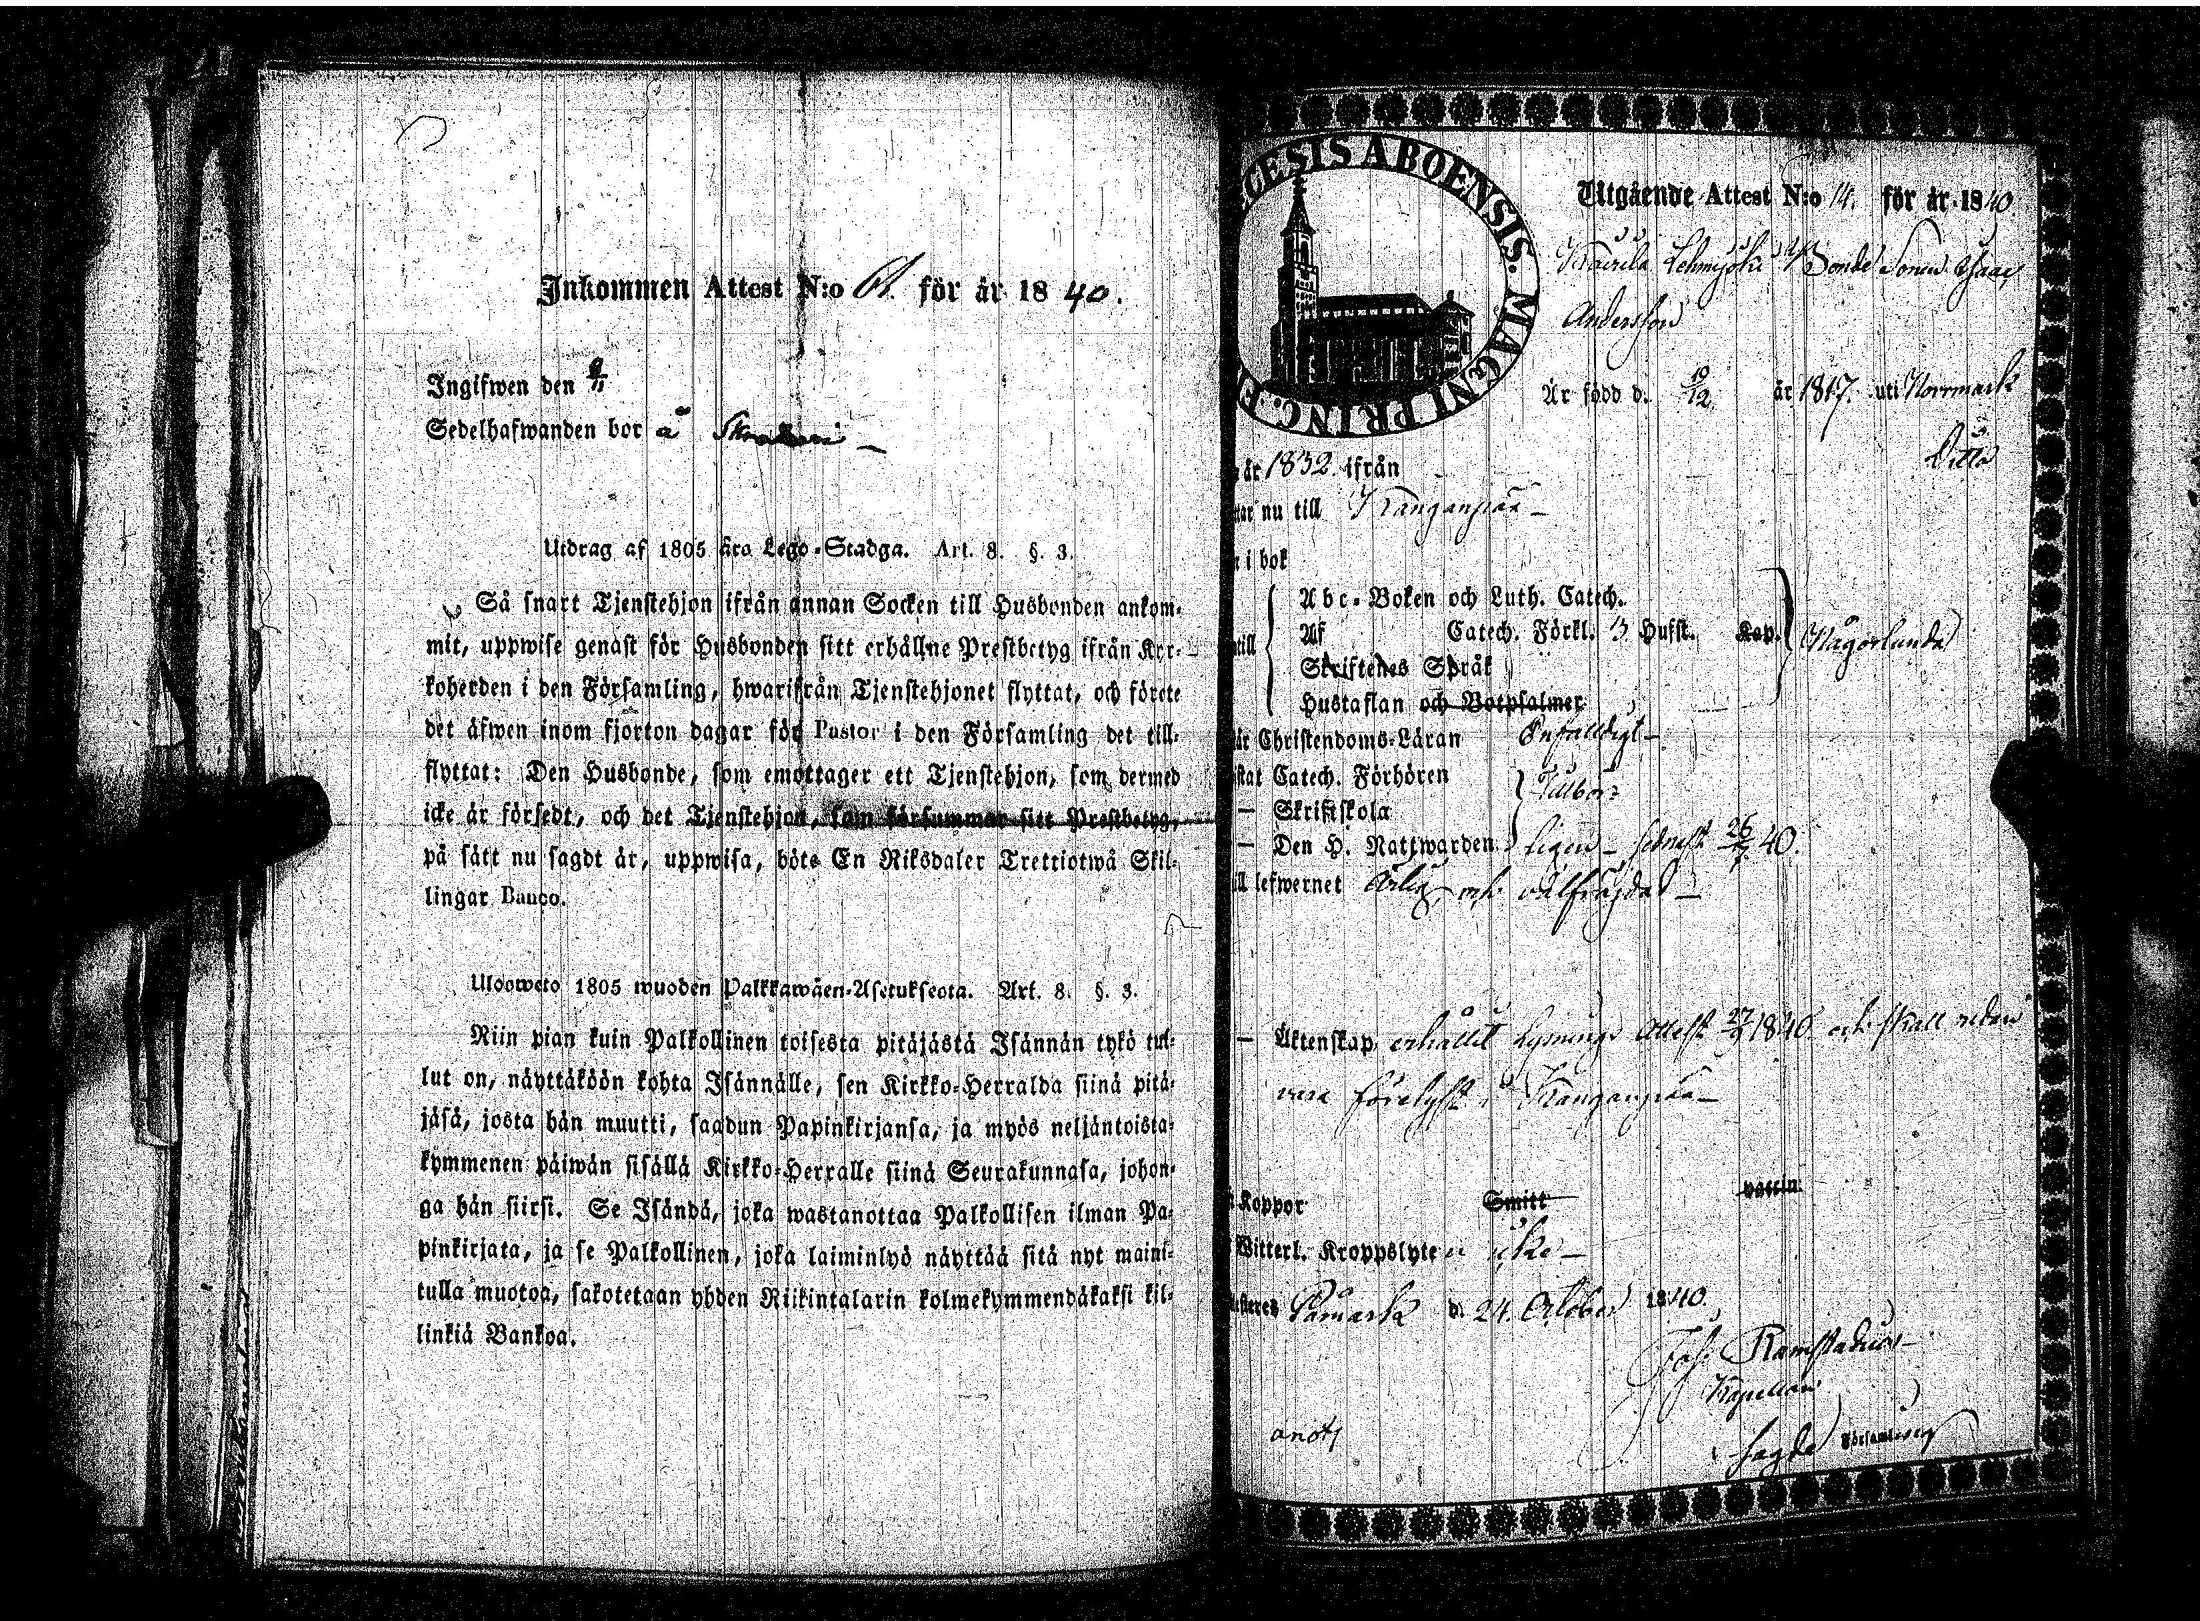 Inkommen Attest N:o 61. för år 1840.
Ingifwen den 9/11
Sedelhafwanden bor å
Utdrag af 1805 åra Lego-Stadga. Art. 8. §. 3.
Så snart Tjenstehjon ifrån annan Socken till Husbonden ankom-
mit, uppwise genast för Husbonden sitt erhållne Prestbetyg ifrån Kyr-
koherden i den Församling, hwarifrån Tjenstehjonet flyttat, och förete
det äfwen inom fjorton dagar för Pastor i den Församling det till-
flyttat: Den Husbonde, som emottager ett Tjenstehjon, som dermed
icke är försedt, och det Tjenstehjon, som försummar sitt Prestbetyg,
på sätt nu sagdt är, uppwisa, böte En Riksdaler Trettiotwå Skil-
lingar Banco.
Ulosweto 1805 wuoden Palkkawäen-Asetuksesta. Art. 8. §. 3.
Niin pian kuin Palkollinen toisesta pitäjästä Isännän tykö tul-
lut on, näyttäköön kohta Isännälle, sen Kirkko-Herralda siinä pitä-
jäsä, josta hän muutti, saadun Papinkirjansa, ja myös neljäntoista-
kymmenen päiwän sisällä Kirkko-Herralle siinä Seurakunnasa, johon-
ga hän siirsi. Se Isändä, joka wastanottaa Palkollisen ilman Pa-
pinkirjata, ja se Palkollinen, joka laiminlyö näyttää sitä nyt maini-
tulla muotoa, sakotetaan yhden Riikintalarin kolmekymmendäkaksi kil-
linkiä Bankoa.
CESIS ABOENSIS. MAGNI PRINC. F
Utgående Attest N:o 14. för år 1840.
Bonde Sonen Isaac
Andersson
Är född d. 19/12 år 1817. uti Norrmark
Ditto
år 1832 ifrån
nu till Kanganpää
i bok
Abc-Boken och Luth. Catech.
till Af Catech. Förkl. 3 Hufst. Kap. Någorlunda
Skriftenes Språk
Hustaflan och Botpsalmer
Christendoms-Läran Enfaldigt
Catech. Förhören Tillbör-
— Skriftskola
— Den H. Nattwarden ligen — senast 26/7 40.
lefwernet ärlig och välfrägdad —
— Äktenskap erhållit Lysnings Attest 27/9 1840. och skall redan
vara förelyst i Kanganpää —
Koppor Smitt
Witterl. Kroppslyte icke —
Påmark d. 24. October 1840.
Joh. Ramstadius
Kapellan
i sagde Församling